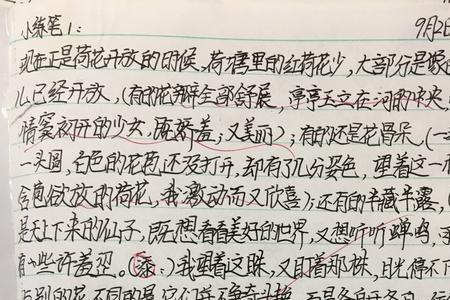 小练笔1: 9月2日
现在正是荷花开放的时候,荷塘里的红荷花少,大部分是
么已经开放,(有的花瓣全部舒展,亭亭玉立在河的中央
情窦初开的少女,既娇羞,又美丽);有的还是花骨朵,(一
一头圆,白色的花苞还没打开,却有了几分姿色,望着这一
含苞欲放的荷花,我激动而又欣喜);还有的半藏半露,(
是天上下来的仙子,既想看看美好的世界,又想听听蝉鸣,
有些许羞涩。(添:)我望着这眯,又盯着那株,目光停不下